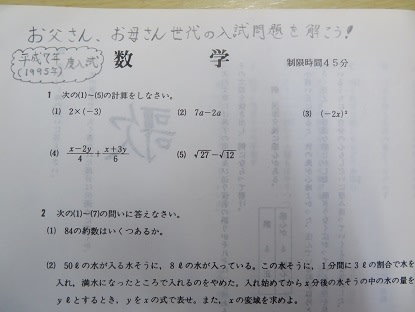 お父さん、お母さん世代の入試問題を解こう!
平成7年
(1995年)度入試
数 学
制限時間45分
1 次の(1)~(5)の計算をしなさい。
(1) 2×(-3) (2) 7a-2a (3) (-2x)³
(4) (x-2y)/4 + (x+3y)/6 (5) √27-√12
2 次の(1)~(7)の問いに答えなさい。
(1) 84の約数はいくつあるか。
(2) 50ℓの水が入る水そうに、8ℓの水が入っている。この水そうに、1分間に3ℓの割合で水を
入れ、満水になったところで入れるのをやめた。入れ始めてからx分後の水そうの中の水の量を
yℓとするとき、yをxの式で表せ。また、xの変域を求めよ。